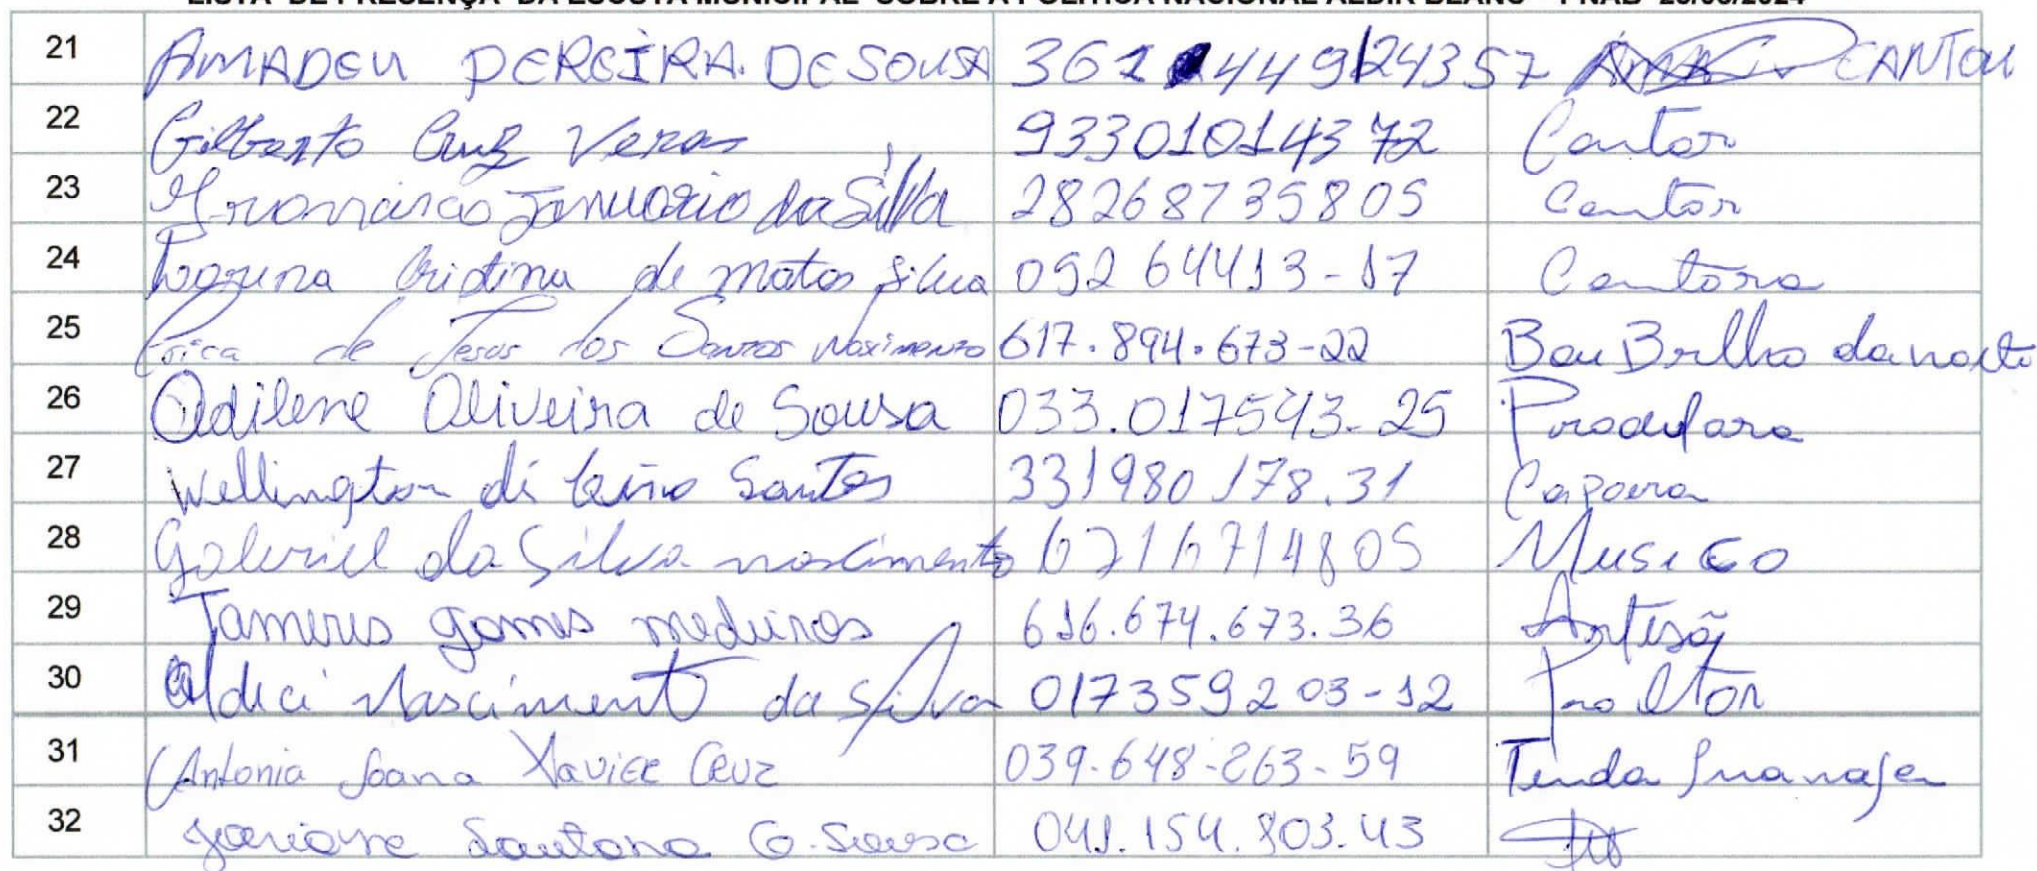 LISTA DE PRESENÇA DA ESCUSTA MUNICIPAL SOBRE A POLÍTICA NACIONAL ALDIR BLANC - PNAB 2024
21 AMADEU PEREIRA DE SOUSA 361 449 243 57 CANTOU
22 Gilberto Cruz Veras 93301014372 Cantor
23 Januario da Silva 28268735805 Cantor
24 Cristina de Matos Silva 092 64413-17 Cantora
25 de Jesus dos Santos Nascimento 617.894.673-22 Brilho da
26 Odilene Oliveira de Sousa 033.017543-25
27 Wellington Santos 331980178.31 Capoera
28 Gabriel da Silva nascimento 6216714805 Musico
29 gomes medeiros 616.674.673.36 Artesã
30 Aldeci Nascimento da Silva 017359203-12
31 Antonia Joana Xavier Cruz 039.648-263-59 Tenda
32 Santana G. Sousa 041.154.803.43